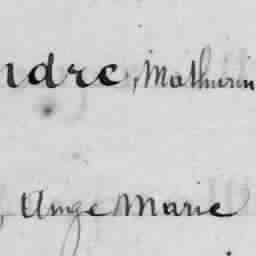 ndre, Mathurin
, Ange Marie